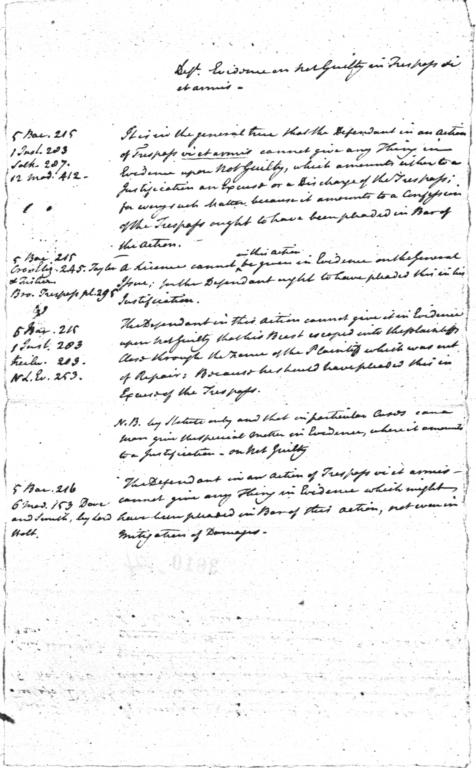 Deft. Evidence on Not Guilty in Trespass vi
et armis -
5 Bac. 215
1 Inst. 283
Salk. 287.
12 Mod. 412 -
It is in the general true that the Defendant in an action
of Trespass vi et armis cannot give any Thing in
Evidence upon Not Guilty, which amounts either to a
Justification an Excuse or a Discharge of the Trespass;
for every such Matter because it amounts to a Confession
of the Trespass ought to have been pleaded in Bar of
the Action.
5 Bac. 215
Cro. Eliz. 245. Taylor
& Fisher.
Bro. Trespass pl. 295
in this action
A Licence cannot be given in Evidence on the General
Issue; for the Defendant ought to have pleaded this in his
Justification.
5 Bac. 215
1 Inst. 283
283.
N. L. Ev. 253.
The Defendant in this Action cannot give it in Evidence
upon Not Guilty that his Beast escaped into the plaintiffs
Close through the Fence of the Plaintiff which was out
of Repair: Because he should have pleaded this in
Excuse of the Trespass.
N.B. by Statute only and that in particular Cases can a
man give the special matter in Evidence, where it amounts
to a Justification - on Not Guilty
5 Bac. 216
6 Mod. 153 Dove
and Smith, by Lord
Holt.
The Defendant in an action of Trespass vi et armis -
cannot give any Thing in Evidence which might
have been pleaded in Bar of this action, not even in
Mitigation of Damages -